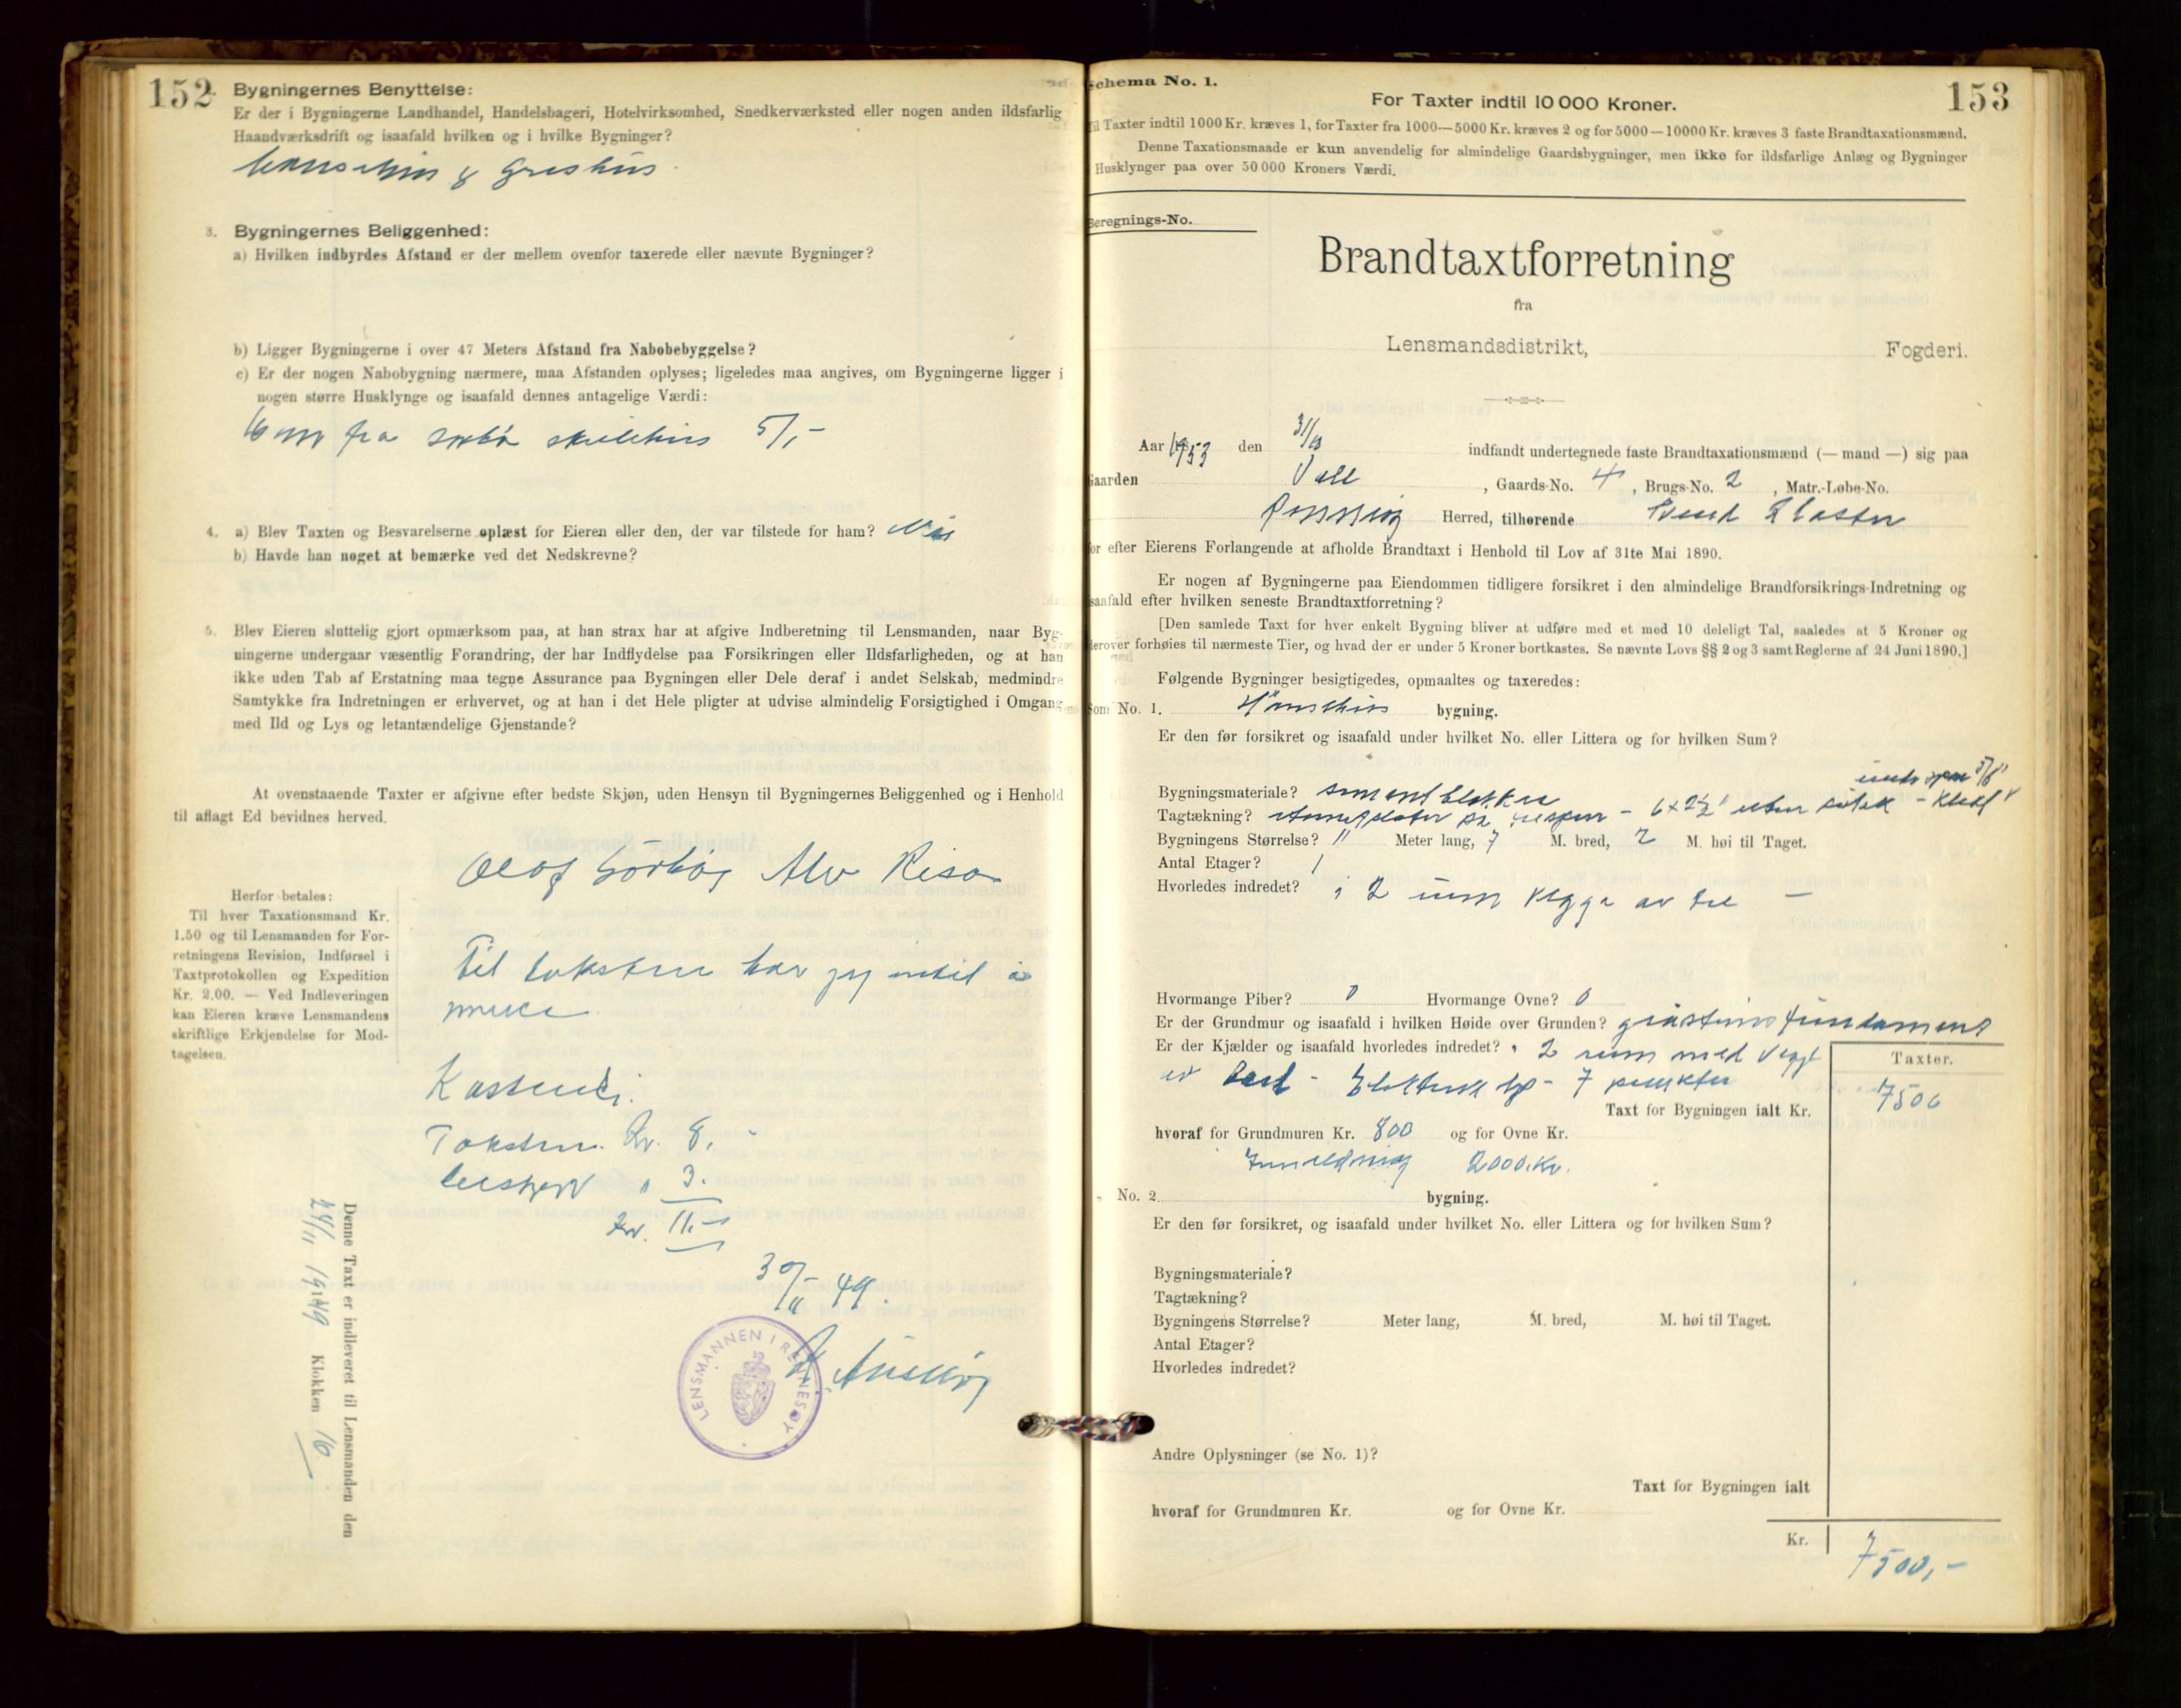 152
Bygningernes Benyttelse:
Er der i Bygningerne Landhandel, Handelsbageri, Hotelvirksomhed, Snedkerværksted eller nogen anden ildsfarlig
Haandværksdrift og isaafald hvilken og i hvilke Bygninger?
& grishus
3. Bygningernes Beliggenhed:
a) Hvilken indbyrdes Afstand er der mellem ovenfor taxerede eller nævnte Bygninger?
b) Ligger Bygningerne i over 47 Meters Afstand fra Nabobebyggelse?
c) Er der nogen Nabobygning nærmere, maa Afstanden oplyses; ligeledes maa angives, om Bygningerne ligger i
nogen større Husklynge og isaafald dennes antagelige Værdi:
fra
4. a) Blev Taxten og Besvarelserne oplæst for Eieren eller den, der var tilstede for ham?
b) Havde han noget at bemærke ved det Nedskrevne?
5. Blev Eieren sluttelig gjort opmærksom paa, at han strax har at afgive Indberetning til Lensmanden, naar Byg-
ningerne undergaar væsentlig Forandring, der har Indflydelse paa Forsikringen eller Ildsfarligheden, og at han
ikke uden Tab af Erstatning maa tegne Assurance paa Bygningen eller Dele deraf i andet Selskab, medmindre
Samtykke fra Indretningen er erhvervet, og at han i det Hele pligter at udvise almindelig Forsigtighed i Omgang
med Ild og Lys og letantændelige Gjenstande?
At ovenstaaende Taxter er afgivne efter bedste Skjøn, uden Hensyn til Bygningernes Beliggenhed og i Henhold
til aflagt Ed bevidnes herved.
Olaf Sörbø Alv Reiso
Herfor betales:
Til hver Taxationsmand Kr.
1.50 og til Lensmanden for For-
retningens Revision, Indførsel i
Taxtprotokollen og Expedition
Kr. 2.00. — Ved Indleveringen
kan Eieren kræve Lensmandens
skriftlige Erkjendelse for Mod-
tagelsen.
Til taksten har jeg intet å
merke
Kostende:
Taksten. Kr. 8.-
3.
Kr. 11.-
30/11 49.
LENSMANNEN I RENNESØY
Denne Taxt er indleveret til Lensmanden den
24/11 1949 Klokken 16
Schema No. 1.
153
For Taxter indtil 10 000 Kroner.
Til Taxter indtil 1000 Kr. kræves 1, for Taxter fra 1000—5000 Kr. kræves 2 og for 5000—10000 Kr. kræves 3 faste Brandtaxationsmænd.
Denne Taxationsmaade er kun anvendelig for almindelige Gaardsbygninger, men ikke for ildsfarlige Anlæg og Bygninger
Husklynger paa over 50 000 Kroners Værdi.
Beregnings-No.
Brandtaxtforretning
fra
Lensmandsdistrikt, Fogderi.
Aar 1953 den indfandt undertegnede faste Brandtaxationsmænd (— mand —) sig paa
Gaarden Vall, Gaards-No. 4, Brugs-No. 2, Matr.-Løbe-No.
Herred, tilhørende
for efter Eierens Forlangende at afholde Brandtaxt i Henhold til Lov af 31te Mai 1890.
Er nogen af Bygningerne paa Eiendommen tidligere forsikret i den almindelige Brandforsikrings-Indretning og
isaafald efter hvilken seneste Brandtaxtforretning?
[Den samlede Taxt for hver enkelt Bygning bliver at udføre med et med 10 deleligt Tal, saaledes at 5 Kroner og
derover forhøies til nærmeste Tier, og hvad der er under 5 Kroner bortkastes. Se nævnte Lovs §§ 2 og 3 samt Reglerne af 24 Juni 1890.]
Følgende Bygninger besigtigedes, opmaaltes og taxeredes:
Som No. 1. Hønsehus bygning.
Er den før forsikret og isaafald under hvilket No. eller Littera og for hvilken Sum?
Bygningsmateriale? sementblokker
Tagtækning?
Bygningens Størrelse? 11 Meter lang, 7 M. bred, 2 M. høi til Taget.
Antal Etager? 1
Hvorledes indredet? i 2 rum vegga av tre —
Hvormange Piber? 0 Hvormange Ovne? 0
Er der Grundmur og isaafald i hvilken Høide over Grunden? gråsteins fundament
Er der Kjælder og isaafald hvorledes indredet? 2 rum med vegg
Elektrisk 7 punkter
Taxter.
7500
Taxt for Bygningen ialt Kr.
hvoraf for Grundmuren Kr. 800 og for Ovne Kr.
Innredning 2000.Kr.
No. 2 bygning.
Er den før forsikret, og isaafald under hvilket No. eller Littera og for hvilken Sum?
Bygningsmateriale?
Tagtækning?
Bygningens Størrelse? Meter lang, M. bred, M. høi til Taget.
Antal Etager?
Hvorledes indredet?
Andre Oplysninger (se No. 1)?
Taxt for Bygningen ialt
hvoraf for Grundmuren Kr. og for Ovne Kr.
Kr. 7500,-